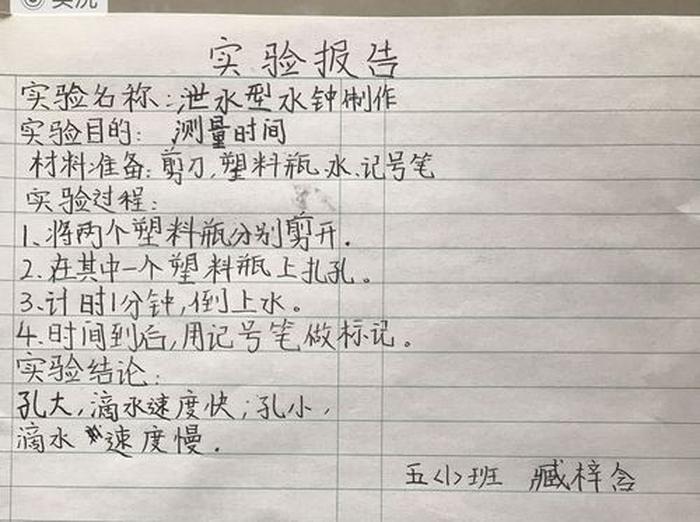 实验报告
实验名称:泄水型水钟制作
实验目的: 测量时间
材料准备:剪刀,塑料瓶,水、记号笔
实验过程:
1、将两个塑料瓶分别剪开.
2、在其中一个塑料瓶上扎孔。
3、计时1分钟,倒上水。
4、时间到后,用记号笔做标记。
实验结论:
孔大,滴水速度快;孔小,
滴水速度慢.
五<1>班 臧梓含